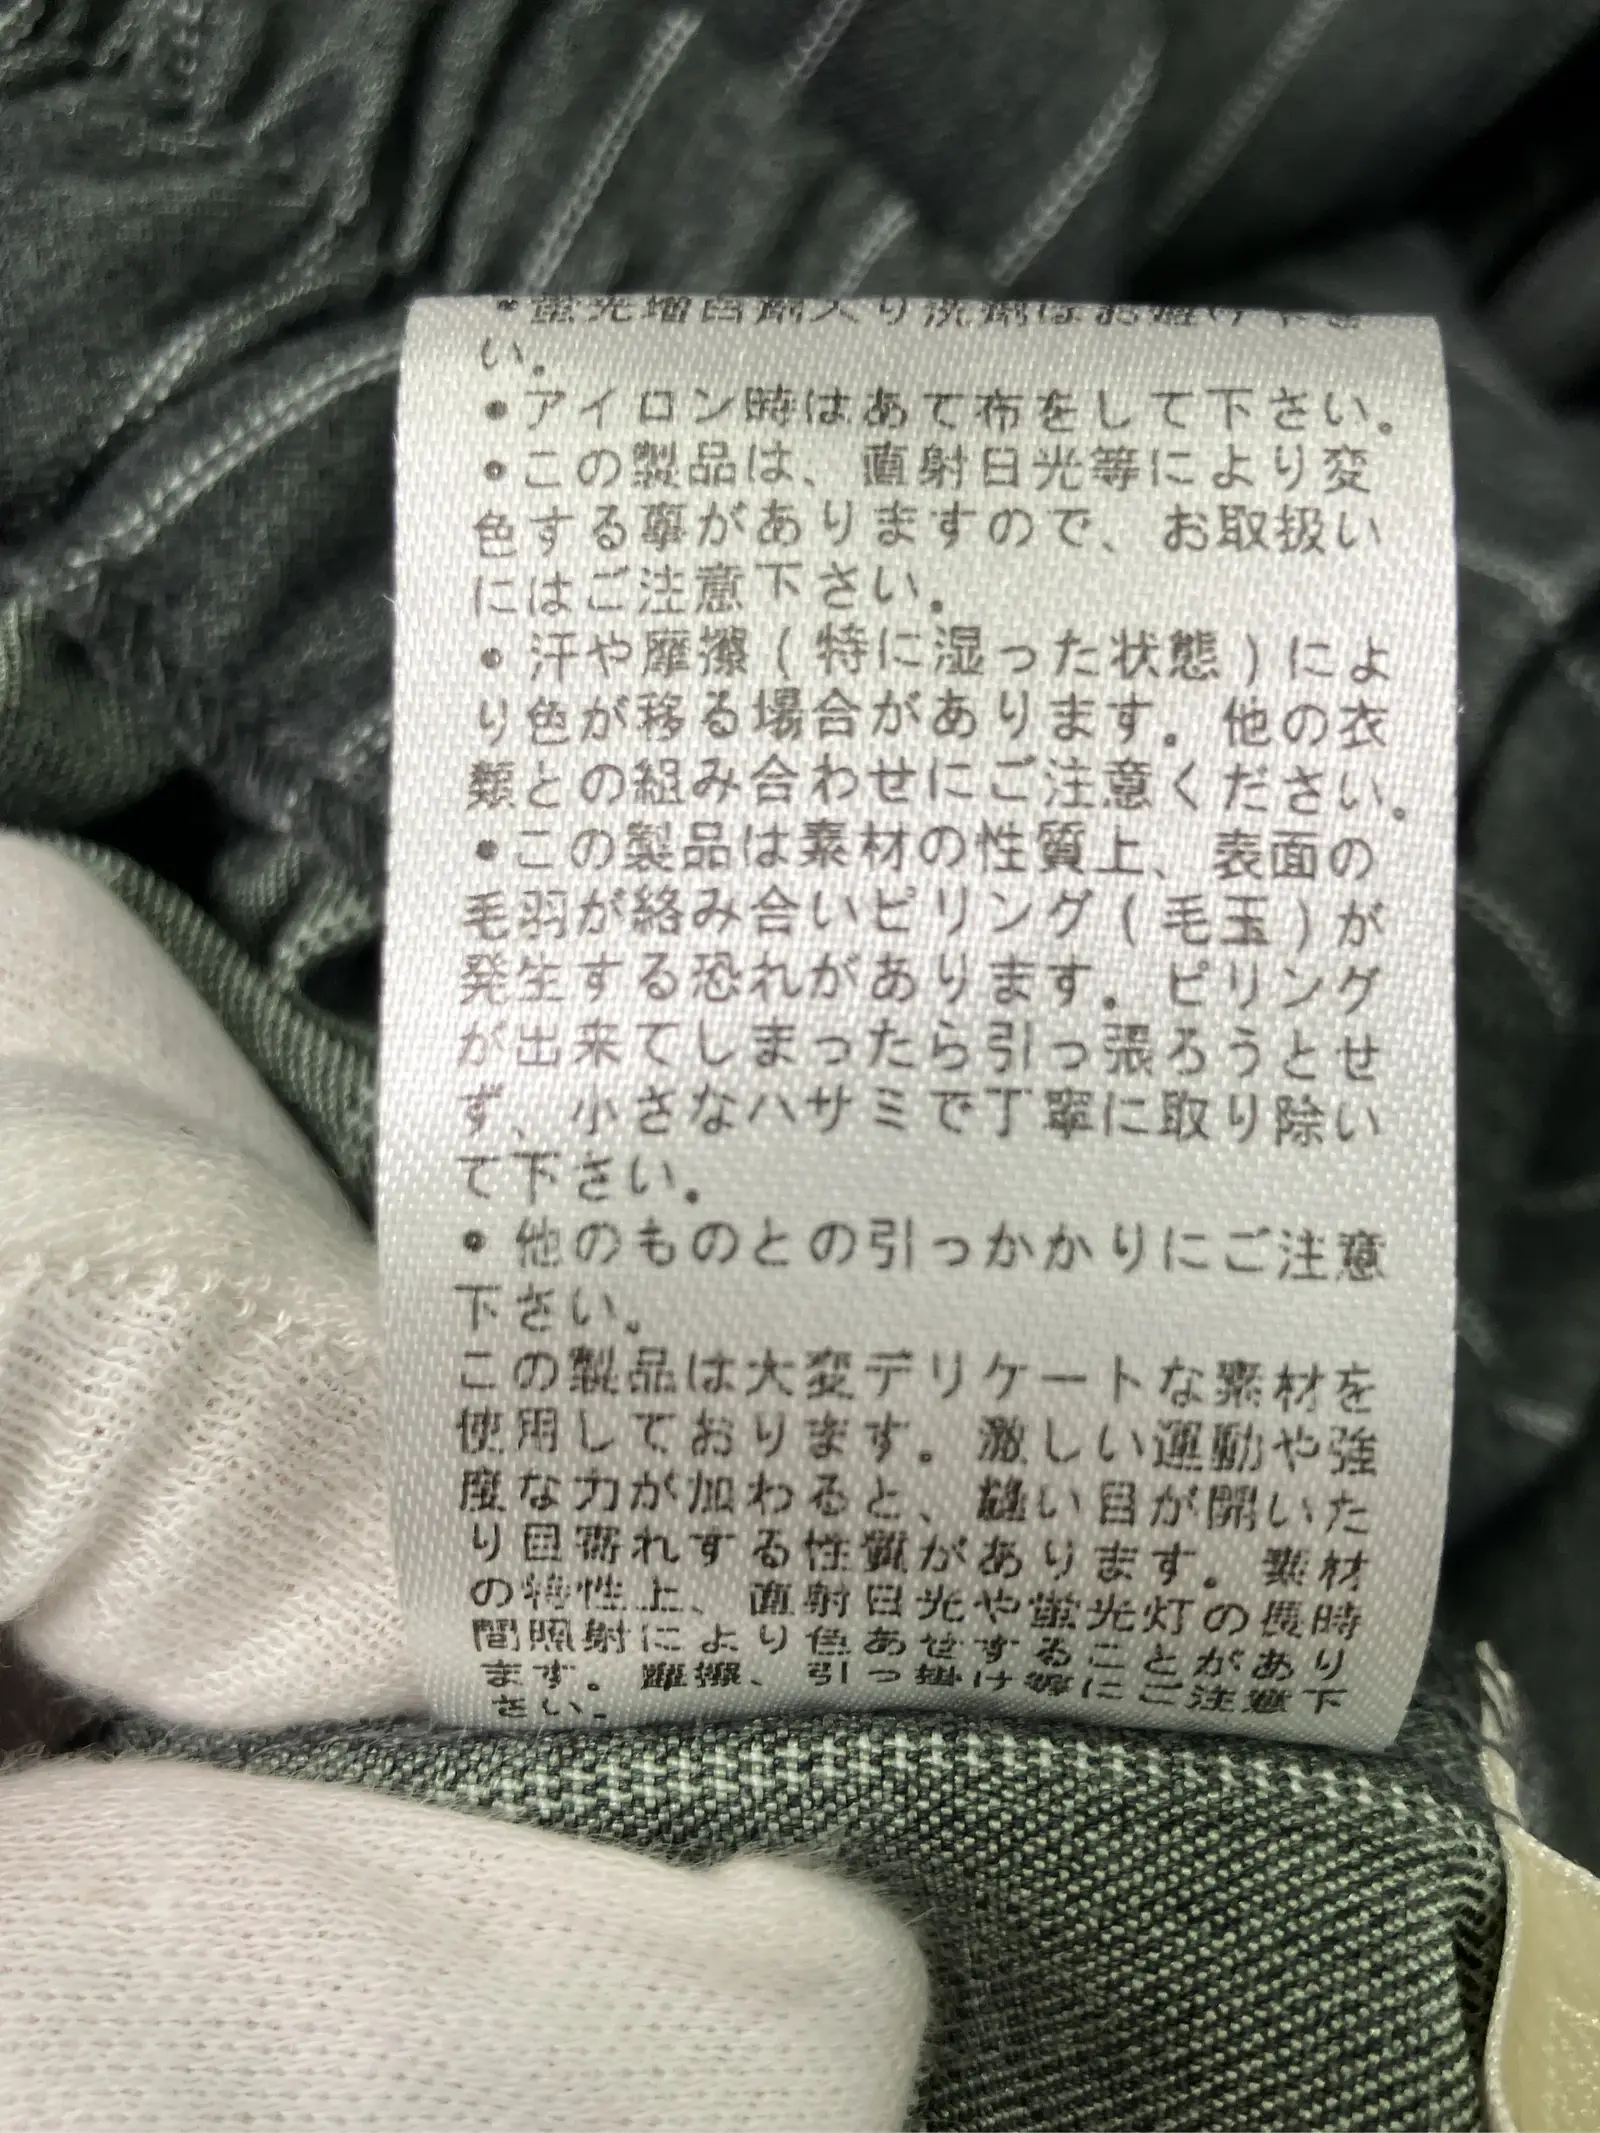 ・蛍光増白剤入り洗剤はお避け下さ
い。
・アイロン時はあて布をして下さい。
・この製品は、直射日光等により変
色する事がありますので、お取扱い
にはご注意下さい。
・汗や摩擦(特に湿った状態)によ
り色が移る場合があります。他の衣
類との組み合わせにご注意ください。
・この製品は素材の性質上、表面の
毛羽が絡み合いピリング(毛玉)が
発生する恐れがあります。ピリング
が出来てしまったら引っ張ろうとせ
ず、小さなハサミで丁寧に取り除い
て下さい。
・他のものとの引っかかりにご注意
下さい。
この製品は大変デリケートな素材を
使用しております。激しい運動や強
度な力が加わると、縫い目が開いた
り目寄れする性質があります。素材
の特性上、直射日光や蛍光灯の長時
間照射により色あせすることがあり
ます。摩擦、引っ掛け等にご注意下
さい。